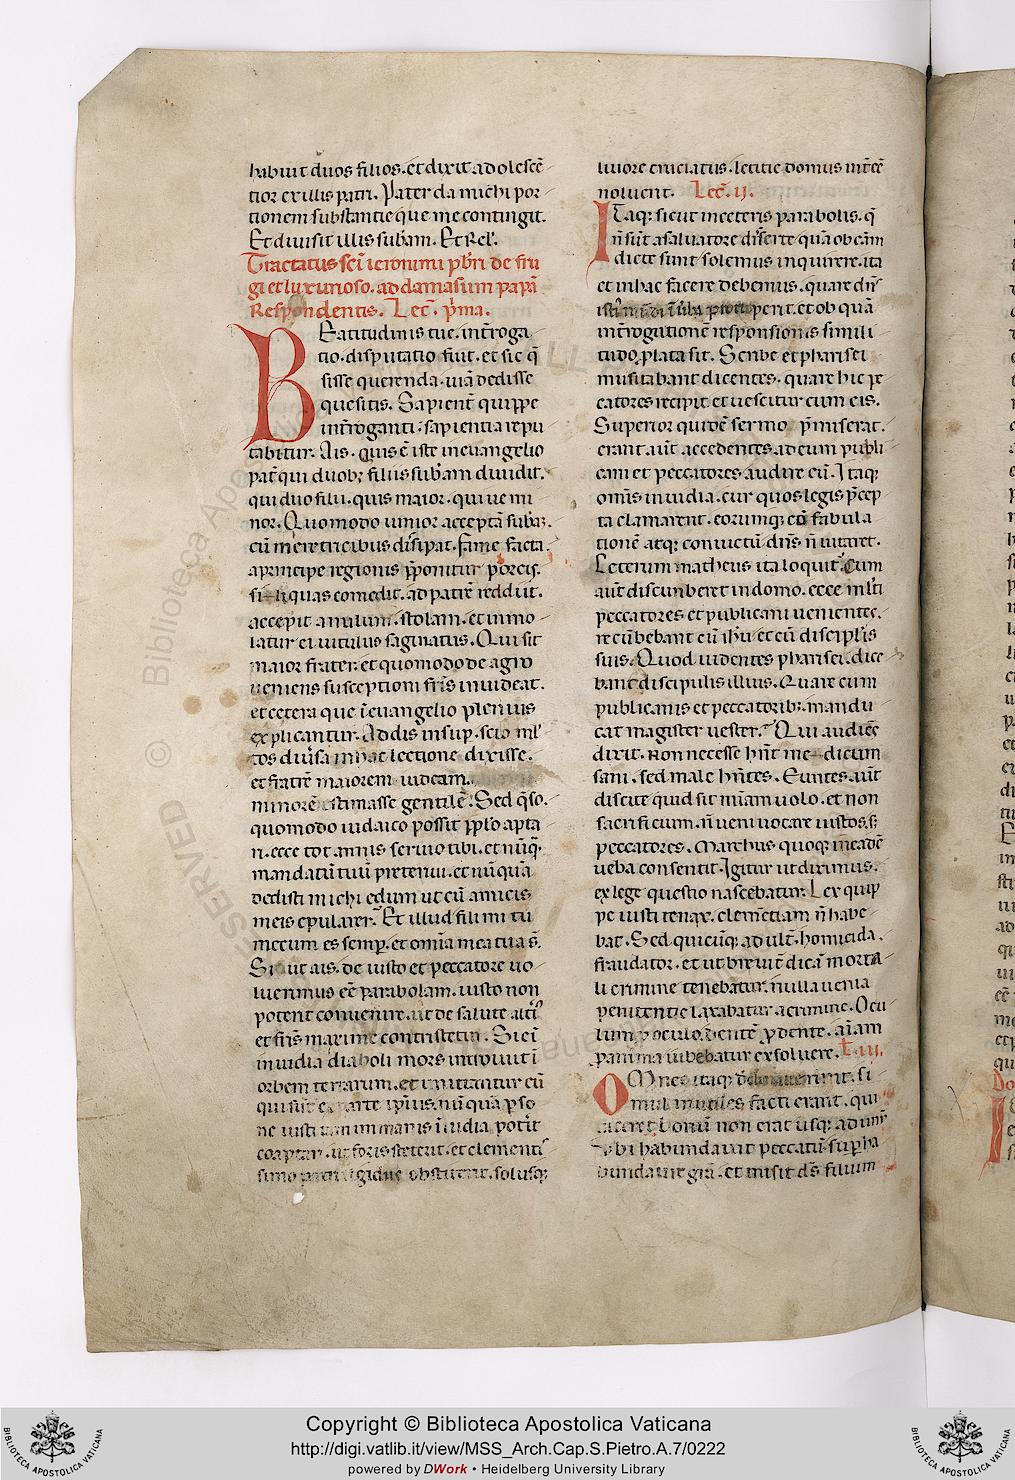 habuit duos filios. et dixit adolescē
tior ex illis patri. Pater da michi por
tionem substantie que me contingit.
Et diuisit illis subam. Et Rel'.
Tractatus sci ieronimi pbri de fru
gi et luxurioso. ad damasum papā
Respondentis. Lec. p'ma.
Beatitudinis tue. int'roga
tio. disputatio fuit. et sic q̄
sisse querenda. uiā dedisse
quesitis. Sapient' quippe
int'roganti. sapientia repu
tabitur. Ais. Quis ē iste in euangelio
pat' qui duob; filiis subam diuidit.
qui duo filii. quis maior. qui ue mi
nor. Quomodo iunior acceptā subaz.
cū meretricibus disipat. fame facta.
a principe regionis p̄ponitur porcis.
siliquas comedit. ad patrē reddiit.
accepit anulum. stolam. et inmo
latur ei uitulus saginatus. Qui sit
maior frater. et quomodo de agro
ueniens susceptioni fr̄is inuideat.
et cetera que ī euangelio plenius
explicantur. Addis insup. scio ml'
tos diu'sa in hac lectione dixisse.
et fratrē maiorem iudeum.
minorē estimasse gentilē. Sed q̄so.
quomodo iudaico possit pp̄lo apta
ri. ecce tot annis seruio tibi. et nūq̄.
mandatū tuū preteriui. et nūquā
dedisti michi edum ut cū amicis
meis epularer. Et illud fili mi tu
mecum es semp. et omīa mea tua s̄.
Si ut ais. de iusto et peccatore uo
luerimus eē parabolam. iusto non
poterit conuenire. ut de salute alt'i'
et fr̄is maxime contristetur. Si eī
inuidia diaboli mors introiuit ī
orbem terrarum. et imitantur eū
qui sūt ex parte ipsius. nūquā p'so
ne iusti tam immanis īuidia pot'it
coaptari. ut foris steterit. et clementi
simo patri rigidus obstiterit. solusq;
liuore cruciatus. letitie domus int'eē
noluerit. Lec. ii.
Itaq; sicut in ceteris parabolis. q̄
n̄ sūt a saluatore diserte quā ob cām
dicte sunt solemus inquirere. ita
et in hac facere debemus. quare dn̄s
in uba prorupерit. et ob quā
int'rogationē responsionis simili
tudo p̄lata sit. Scribe et pharisei
musitabant dicentes. quare hic pe
catores recipit et uescitur cum eis.
Superior quidē sermo p̄miserat.
erant aūt accedentes ad eum publi
cani et peccatores audire eū. Itaq;
omīs inuidia. cur quos legis p̄cep
ta clamarent. eorumq; cō fabula
tionē atq; conuictū dn̄s n̄ uitaret.
Leterum matheus ita loquit'. Cum
aūt discumberet in domo. ecce ml'ti
peccatores et publicani uenientes.
recūbebant cū ihu et cū discip'lis
suis. Quod uidentes pharisei. dice
bant discipulis illius. Quare cum
publicanis et peccatorib; mandu
cat magister uester. Qui audiēs
dixit. Non necesse hn̄t medicum
sani. sed male hn̄tes. Euntes aūt
discite quid sit. miam uolo. et non
sacrificium. n̄ ueni uocare iustos. s;
peccatores. Marchus quoq; in eadē
ueba consentit. Igitur ut diximus.
ex lege questio nascebatur. Lex quip
pe iusti tenax. clementiam n̄ habe
bat. Sed quicūq; adult'. homicida.
fraudator. et ut breuit' dicā morta
li crimine tenebatur. nulla uenia
penitentie laxabatur a crimine. Ocu
lum p' oculo. dentē p' dente. aīam
p' anima iubebatur exsoluere. L. iii.
Omnes itaq; declinauerunt. si
mul inutiles facti erant. qui
faceret bonū non erat usq; ad unū
Ubi habundauit peccatū. sup'ha
bundauit grā. et misit ds̄ filium